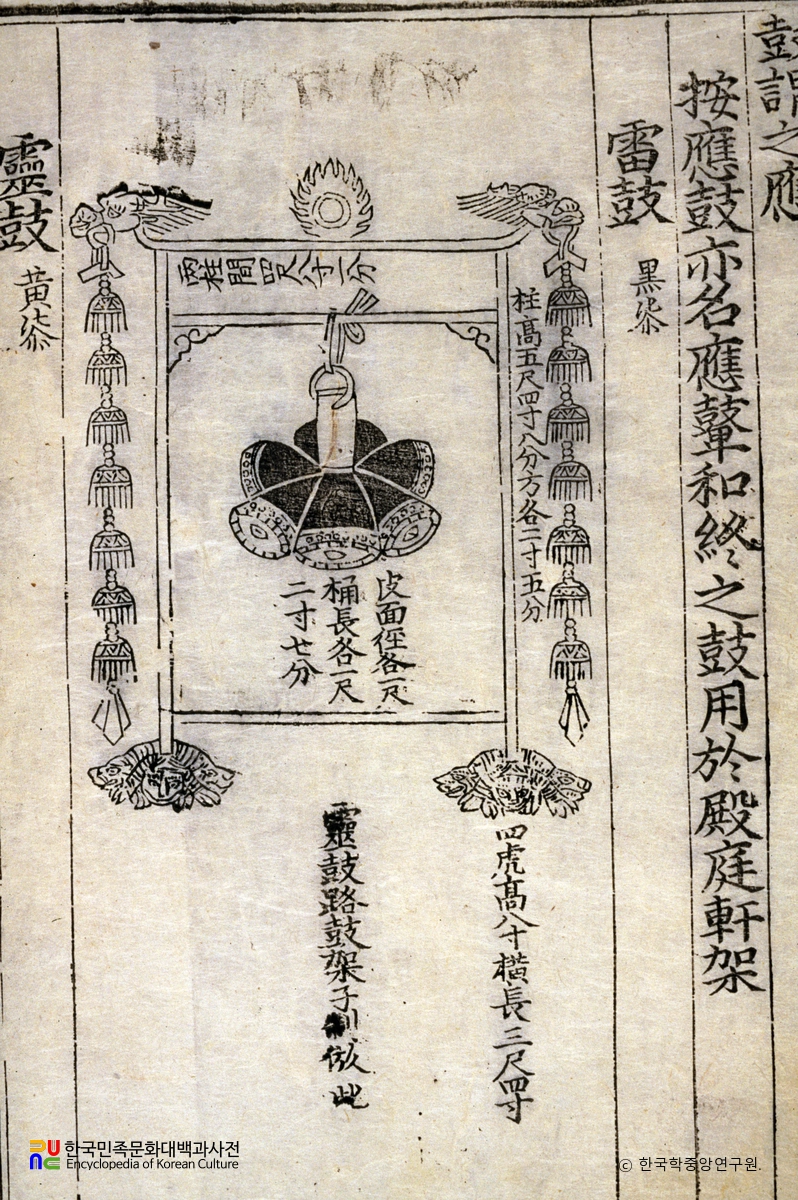 鼓謂之應
按應鼓亦名應鼙和終之鼓用於殿庭軒架
雷鼓 黑柒
兩柱間四尺八寸一分
柱高五尺四寸八分方各二寸五分
皮面徑各一尺
桶長各一尺
二寸七分
四虎高八寸橫長三尺四寸
靈鼓路鼓架子制倣此
靈鼓 黃柒
한국민족문화대백과사전
Encyclopedia of Korean Culture
© 한국학중앙연구원.